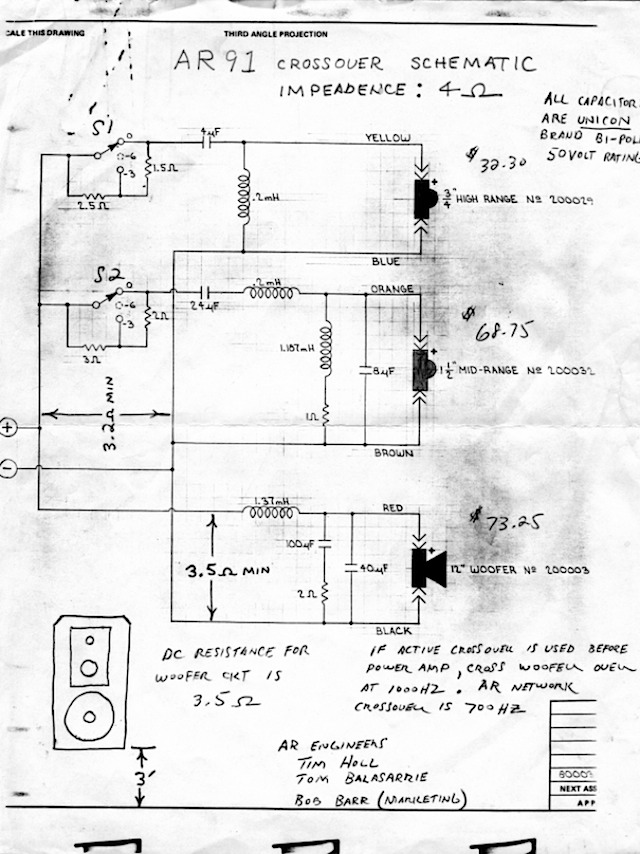 CALE THIS DRAWING
THIRD ANGLE PROJECTION
AR91 CROSSOVER SCHEMATIC
IMPEADENCE: 4Ω
ALL CAPACITOR
ARE UNICON
BRAND BI-POL
50VOLT RATING
S1
0
-6
-3
1.5Ω
2.5Ω
4μF
.2mH
YELLOW
$32.30
+
3/4" HIGH RANGE Nº 200029
BLUE
S2
0
-6
-3
2Ω
3Ω
24μF
.2mH
ORANGE
$68.75
1.187mH
8μF
+
1 1/2" MID-RANGE Nº 200032
1Ω
3.2Ω MIN
+
BROWN
−
1.37mH
RED
$73.25
100μF
3.5Ω MIN
40μF
+
12" WOOFER Nº 200003
2Ω
BLACK
DC RESISTANCE FOR
WOOFER CKT IS
3.5Ω
IF ACTIVE CROSSOVER IS USED BEFORE
POWER AMP, CROSS WOOFER OVER
AT 1000HZ. AR NETWORK
CROSSOVER IS 700HZ
3'
AR ENGINEERS
TIM HOLL
TOM BALASARRIE
BOB BARR (MARKETING)
NEXT ASS
APP